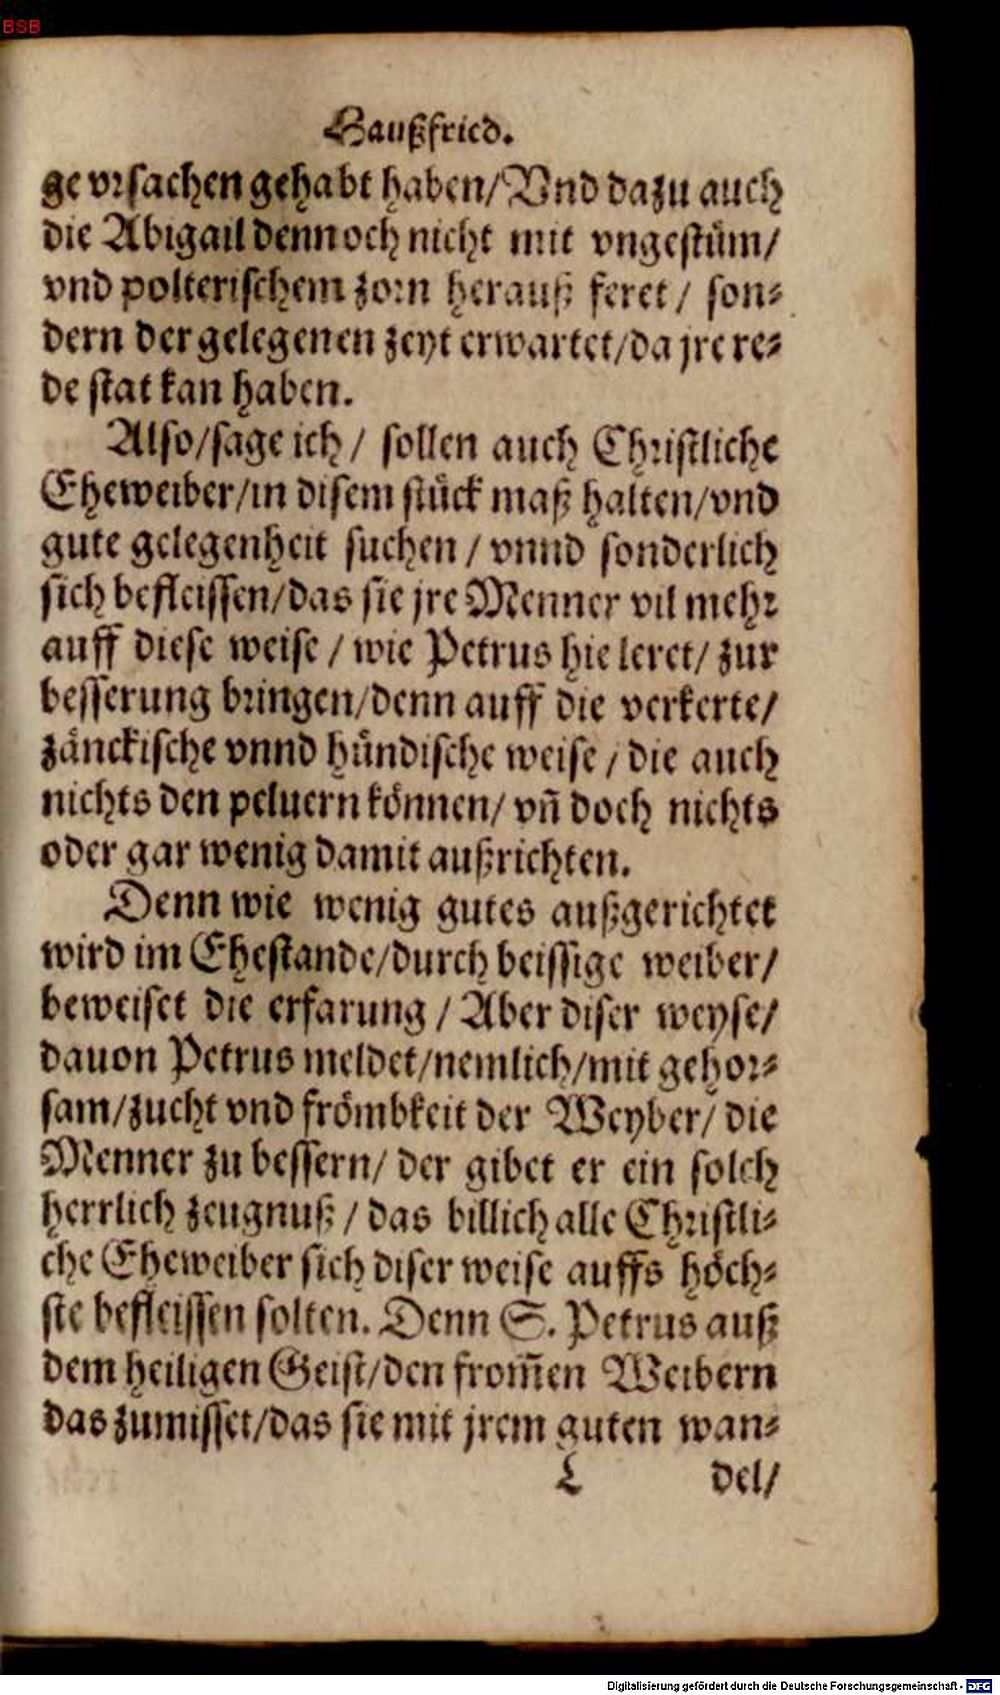 BSB
Haußfried.
ge vrsachen gehabt haben/Vnd dazu auch
die Abigail dennoch nicht mit vngestüm/
vnd polterischem zorn herauß feret / son⸗
dern der gelegenen zeyt erwartet/da jre re⸗
de stat kan haben.
Also/sage ich / sollen auch Christliche
Eheweiber/in disem stück maß halten/vnd
gute gelegenheit suchen / vnnd sonderlich
sich befleissen/das sie jre Menner vil mehr
auff diese weise / wie Petrus hie leret/ zur
besserung bringen/denn auff die verkerte/
zänckische vnnd hündische weise / die auch
nichts den peluern können/ vñ doch nichts
oder gar wenig damit außrichten.
Denn wie wenig gutes außgerichtet
wird im Ehestande/durch beissige weiber/
beweiset die erfarung / Aber diser weyse/
dauon Petrus meldet/nemlich/mit gehor⸗
sam/zucht vnd frömbkeit der Weyber/ die
Menner zu bessern/ der gibet er ein solch
herrlich zeugnuß / das billich alle Christli⸗
che Eheweiber sich diser weise auffs höch⸗
ste befleissen solten. Denn S. Petrus auß
dem heiligen Geist/den from̃en Weibern
das zumisset/das sie mit jrem guten wan⸗
L del/
Digitalisierung gefördert durch die Deutsche Forschungsgemeinschaft - DFG